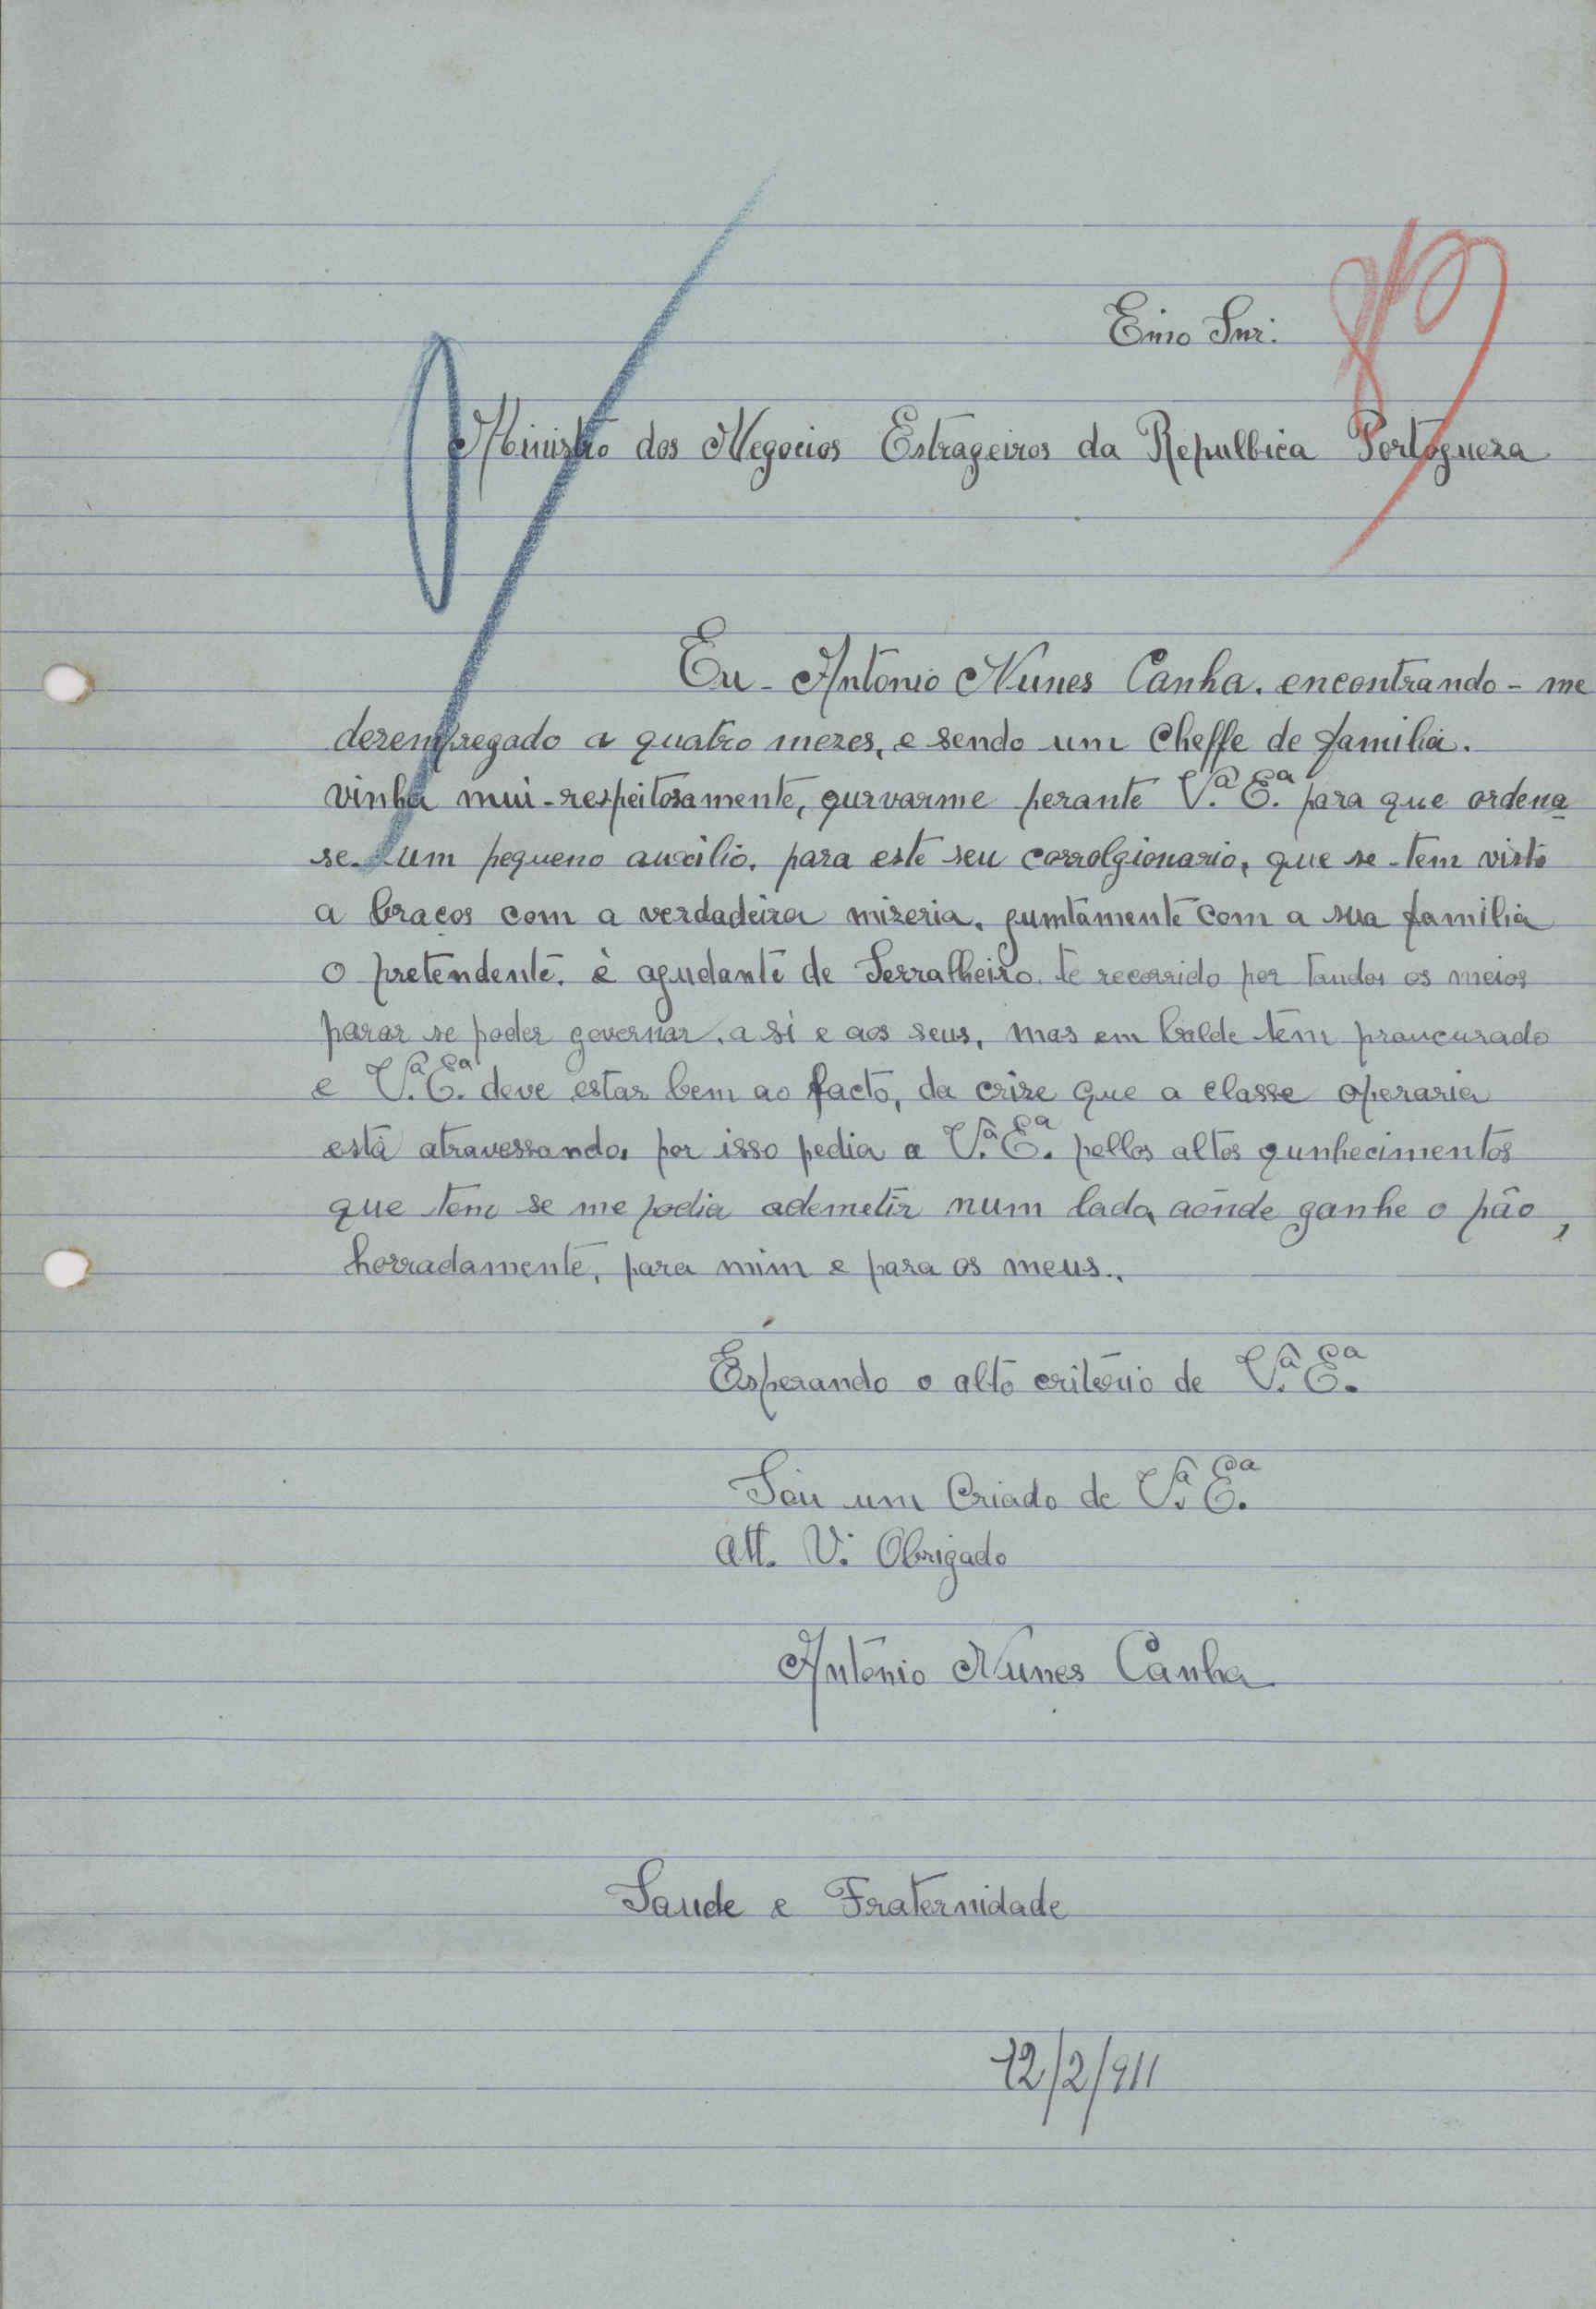 Eimo Snr.
Ministro dos Negocios Estrageiros da Repulbica Portogueza
Eu - Antonio Nunes Canha. encontrando - me
dezempregado a quatro mezes, e sendo um Cheffe de familia.
vinha mui - respeitosamente, qurvarme perante V.ª E.ª para que ordena
se. um pequeno auxilio. para este seu corrolgionario, que se - tem visto
a braços com a verdadeira mizeria. guntamente com a sua familia
o pretendente. è agudante de Serralheiro. te recorrido por toudos os meios
parar se poder governar. a si e aos seus, mas em balde tem proucurado
e V.ª E.ª deve estar bem ao facto, da crize que a classe operaria
está atravessando, por isso pedia a V.ª E.ª pellos altos qunhecimentos
que tem se me podia ademetir num lado, aonde ganhe o pão,
horradamente, para mim e para os meus..
Esperando o alto critério de V.ª E.ª
Sou um Criado de V.ª E.ª
Att. V. Obrigado
António Nunes Canha
Saude e Fraternidade
12/2/911